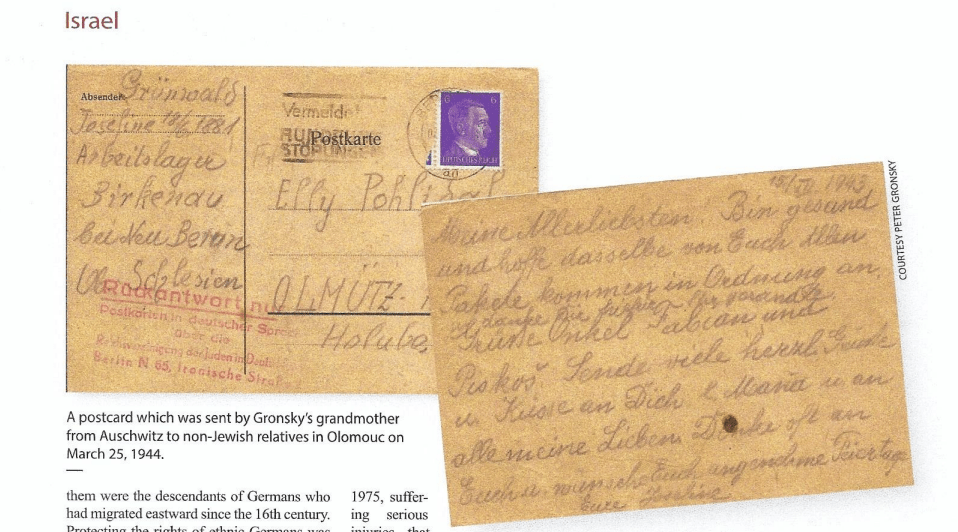 Israel
Absender:
Grünwald
Josefine 18/2 1881
Arbeitslager
Birkenau
bei Neu Berun
Schlesien
Rückantwort nur
Postkarten in deutscher
über die
Reichsvereinigung der Juden in
Berlin N 65, Iranische
Vermeidet
RUNDFUNK
STÖRUNGEN
Postkarte
6 6
DEUTSCHES REICH
Elly
OLMÜTZ
1943
Meine Allerliebsten, Bin gesund
und hoffe dasselbe von Euch Allen
Pakete kommen in Ordnung an,
danke
Grüsse Onkel Fabian und
Piskoř. Sende viele herzl. Grüsse
u. Küsse an Dich u an
alle meine Lieben. Denke oft an
Euch u. wünsche Euch angenehme Feiertage
Eure Josefine
COURTESY PETER GRONSKY
A postcard which was sent by Gronsky's grandmother
from Auschwitz to non-Jewish relatives in Olomouc on
March 25, 1944.
them were the descendants of Germans who
had migrated eastward since the 16th century.
Protecting the rights of ethnic Germans was
1975, suffer-
ing serious
injuries that